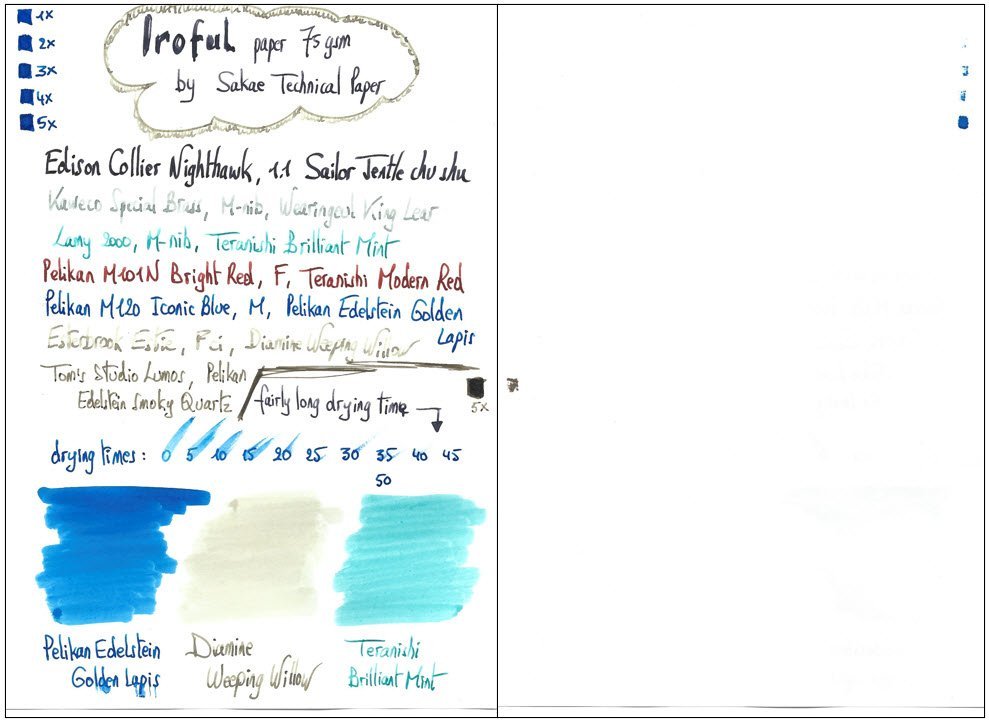 1x
2x
3x
4x
5x
Iroful paper 75 gsm
by Sakae Technical Paper
Edison Collier Nighthawk, 1.1 Sailor Jentle chu shu
Kaweco Special Brass, M-nib, Wearingeul King Lear
Lamy 2000, M-nib, Teranishi Brilliant Mint
Pelikan M101N Bright Red, F, Teranishi Modern Red
Pelikan M120 Iconic Blue, M, Pelikan Edelstein Golden
Lapis
Esterbrook Estie, Diamine Weeping Willow
Tom's Studio Lumos, Pelikan
Edelstein Smoky Quartz
fairly long drying time
5x
drying times: 0 5 10 15 20 25 30 35 40 45
50
Pelikan Edelstein
Golden Lapis
Diamine
Weeping Willow
Teranishi
Brilliant Mint